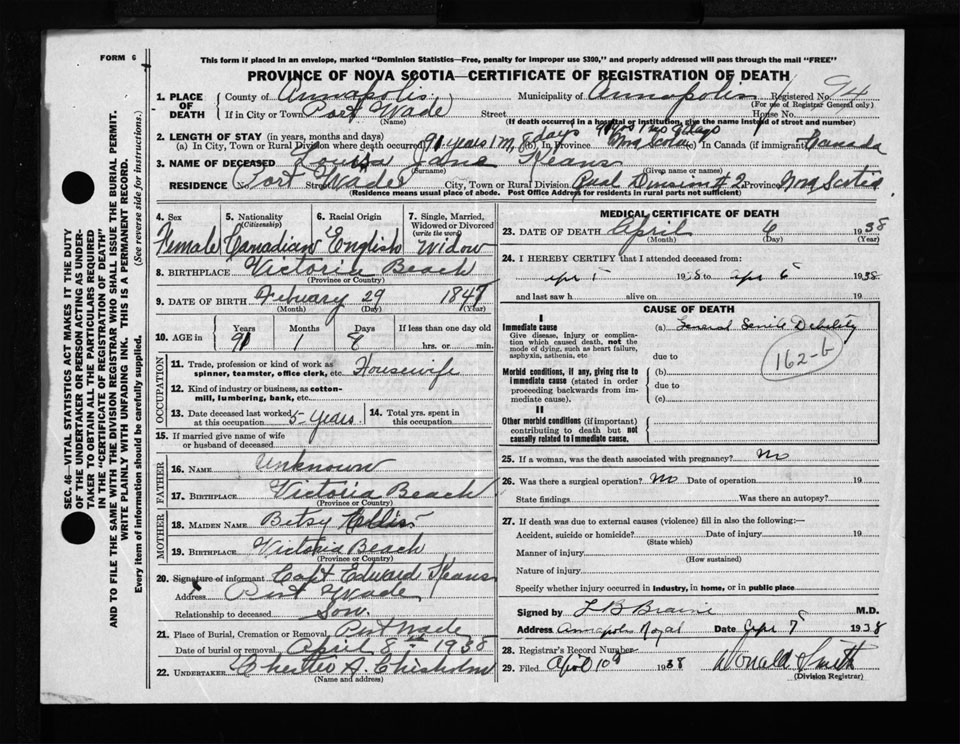 FORM 6
This form if placed in an envelope, marked "Dominion Statistics—Free, penalty for improper use $300," and properly addressed will pass through the mail "FREE"
PROVINCE OF NOVA SCOTIA—CERTIFICATE OF REGISTRATION OF DEATH
1. PLACE OF DEATH County of Annapolis Municipality of Annapolis Registered No. 94
(For use of Registrar General only)
If in City or Town Port Wade Street House No.
(Name) (If death occurred in a hospital or institution, give the name instead of street and number)
2. LENGTH OF STAY (in years, months and days)
(a) In City, Town or Rural Division where death occurred 91 years 1 M 8 days (b) In Province Nova Scotia (c) In Canada (if immigrant) Canada
3. NAME OF DECEASED Louisa Jane Keans
(Surname) (Given name or names)
RESIDENCE Port Wade Street City, Town or Rural Division # 2 Province Nova Scotia
(Residence means usual place of abode. Post Office Address for residents in rural parts not sufficient)
4. Sex Female
5. Nationality (Citizenship) Canadian
6. Racial Origin English
7. Single, Married, Widowed or Divorced (write the word) Widow
8. BIRTHPLACE Victoria Beach
(Province or Country)
9. DATE OF BIRTH Febuary 29 1847
(Month) (Day) (Year)
10. AGE in Years 91 Months 1 Days 8 If less than one day old
hrs. or min.
OCCUPATION
11. Trade, profession or kind of work as spinner, teamster, office clerk, etc. Housewife
12. Kind of industry or business, as cotton-mill, lumbering, bank, etc.
13. Date deceased last worked at this occupation 5 years.
14. Total yrs. spent in this occupation
15. If married give name of wife or husband of deceased
FATHER
16. NAME Unknown
17. BIRTHPLACE Victoria Beach
(Province or Country)
MOTHER
18. MAIDEN NAME Betsy Ellis
19. BIRTHPLACE Victoria Beach
(Province or Country)
20. Signature of informant Capt Edward Keans
Address Port Wade
Relationship to deceased Son.
21. Place of Burial, Cremation or Removal Port Wade
Date of burial or removal April 8th 1938
22. UNDERTAKER A. Chisholm
(Name and address)
MEDICAL CERTIFICATE OF DEATH
23. DATE OF DEATH April 6 1938
(Month) (Day) (Year)
24. I HEREBY CERTIFY that I attended deceased from:
1938 to Apr 6 1938
and last saw h alive on 19
CAUSE OF DEATH
I
Immediate cause
Give disease, injury or complication which caused death, not the mode of dying, such as heart failure, asphyxia, asthenia, etc
(a) General Senile Debility
due to
162-b
Morbid conditions, if any, giving rise to immediate cause (stated in order proceeding backwards from immediate cause).
(b)
due to
(c)
II
Other morbid conditions (if important) contributing to death but not causally related to immediate cause.
25. If a woman, was the death associated with pregnancy? No
26. Was there a surgical operation? No Date of operation 19
State findings Was there an autopsy?
27. If death was due to external causes (violence) fill in also the following:—
Accident, suicide or homicide? Date of injury 19
(State which)
Manner of injury
(How sustained)
Nature of injury
Specify whether injury occurred in industry, in home, or in public place
Signed by L B Braine M.D.
Address Annapolis Royal Date 1938
28. Registrar's Record Number
29. Filed April 10th 1938 Donald Smith
(Division Registrar)
SEC. 46—VITAL STATISTICS ACT MAKES IT THE DUTY OF THE UNDERTAKER OR PERSON ACTING AS UNDERTAKER TO OBTAIN ALL THE PARTICULARS REQUIRED IN THE "CERTIFICATE OF REGISTRATION OF DEATH" AND TO FILE THE SAME WITH THE DIVISION REGISTRAR WHO SHALL ISSUE THE BURIAL PERMIT.
WRITE PLAINLY WITH UNFADING INK. THIS IS A PERMANENT RECORD.
Every item of information should be carefully supplied. (See reverse side for instructions).